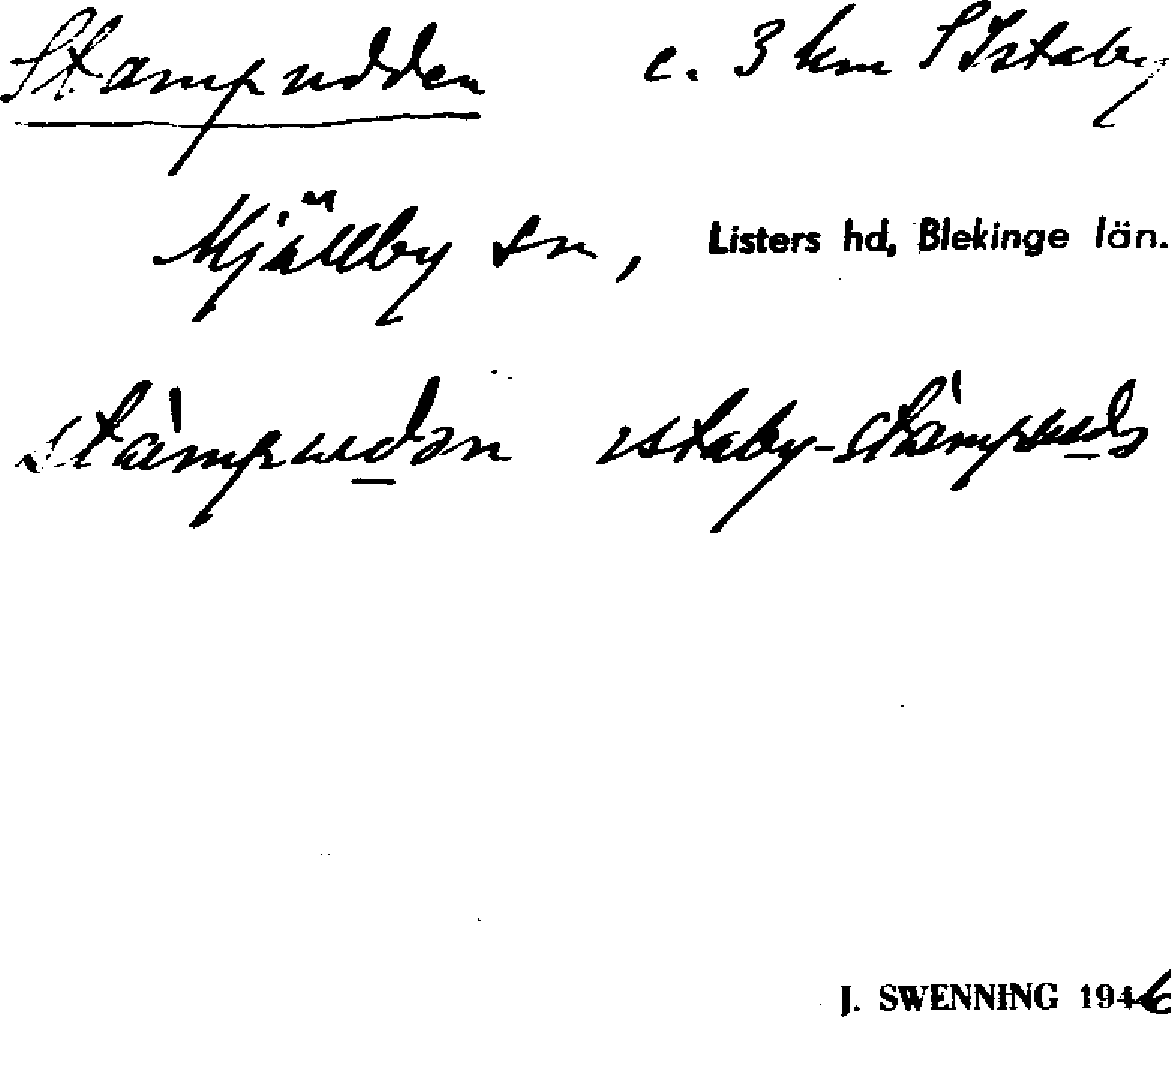 Stampudden c. 3 km S Istaby
Mjällby sn, Listers hd, Blekinge län.
stàmpuedən istaby-stàmpueds
J. SWENNING 1946